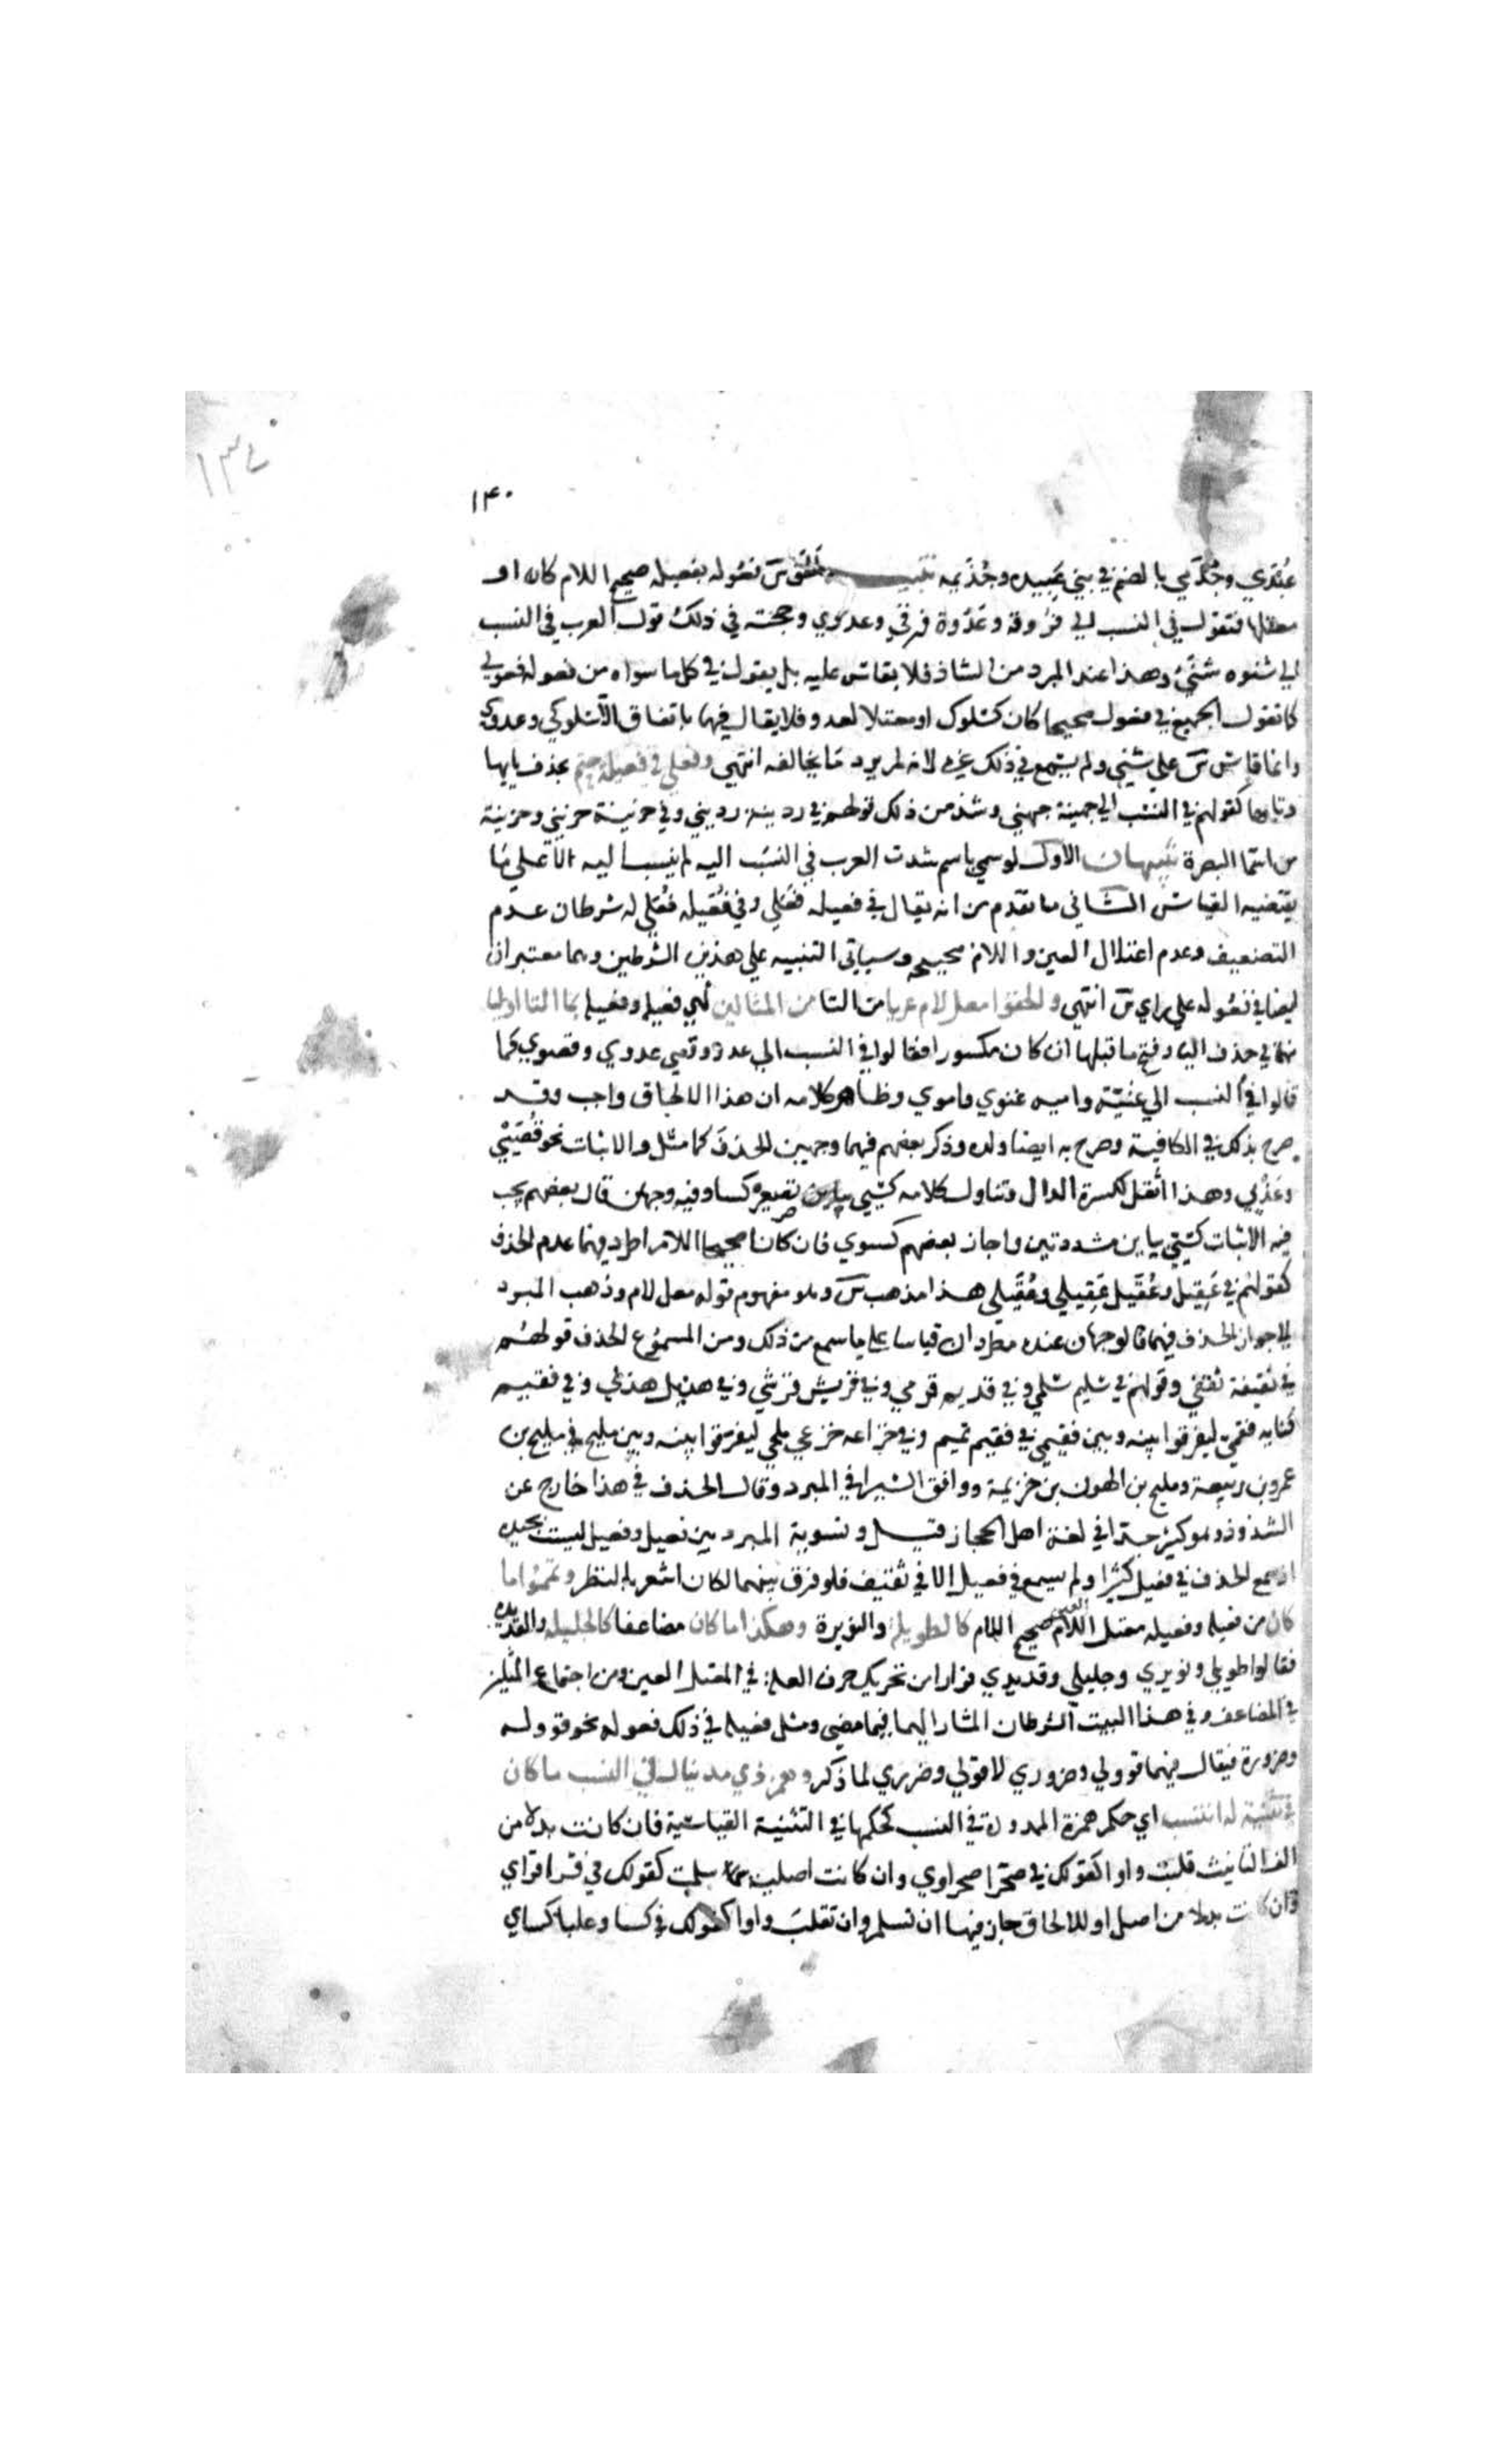 ١٣٧
١٤٠
عُبَدي وجُذَمي بالضم في بني عَبيده وجُذَيمه تنبيه ألحق س فعُوله بفعيله صحيح اللام كان او
معتلها فتقول في النسب الي فروقه وعَدُوة فرقي وعدوي وحجته في ذلك قول العرب في النسب
الي شنوه شنَئي وهذا عند المبرد من الشاذ فلا يقاس عليه بل يقول في كل ما سواه من فعوله فعولي
كما تقول الجميع في فعول صحيحا كان كسَلوك او معتلا كعدو فلا يقال فيهما باتفاق الا سَلوكي وعدوي
وانما قاس س علي شنئي ولم يسمع في ذلك غيره لانه لم يرد ما يخالفه انتهي وفعلي في فعيلة حتم بحذف يايها
وتايها كقولهم في النسَب الي جهينة جهني وشذ من ذلك قولهم في ردينه رديني وفي خزينة خزيني وخزينة
من اسما البصرة تنبيهان الاول لو سمي باسم شذت العرب في النسَب اليه لم ينسب اليه الا علي مَا
يقتضيه القياس الثاني ما تقدم من انه يقال في فعيله فَعَلي وفي فُعَيله فُعَلي له شرطان عدم
التضعيف وعدم اعتلال العين واللام صحيحه وسياتي التنبيه علي هذين الشرطين وهما معتبران
ايضا في فعُوله علي راي س انتهي والحقوا معل لام عريا من التا من المثالين اي فعيله وفعيله بما التا اوليا
منهما في حذف اليا وفتح ما قبلها ان كان مكسورا فقالوا في النسب الي عدي وقصي عدوي وقصوي كما
قالوا في النسب الي غنيَّة واميه غنوي واموي وظاهر كلامه ان هذا الالحاق واجب وقد
صرح بذلك في الكافية وصرح به ايضا ولده وذكر بعضهم فيهما وجهين الحذف كما مثل والاثبات نحو قُصَيّي
وعَدِيّي وهذا اثقل لكسرة الدال وتناول كلامه كسَيّي تصغير كسا وفيه وجهان قال بعضهم يجب
فيه الاثبات كسَيّي بيايين مشددتين واجاز بعضهم كسوي فان كانا صحيحا اللام اطرد فيهما عدم الحذف
كقولهم في عَقِيل وعُقَيل عَقِيلي وعُقَيلي هذا مذهب س وهو مفهوم قوله معل لام وذهب المبرد
الي جواز الحذف فيهما فالوجهان عنده مطردان قياسا علي ما سمع من ذلك ومن المسموع الحذف قولهم
في ثقيفة ثقفي وقولهم في سُليم سُلمي وفي قديم قدمي وفي قريش قرشي وفي هذيل هذلي وفي فقيم
كنانه فقمي ليفرقوا بينه وبين فقيمي في فقيم تميم وفي خزاعه خزعي ملحي ليفرقوا بينه وبين مليح في مليح بن
عمرو بن ربيعة ومليح بن الهون بن خزيمة ووافق السيرافي المبرد وقال الحذف في هذا خارج عن
الشذوذ وهو كثير جدا في لغة اهل الحجاز قيل وتسوية المبرد بين فعيل وفعيل ليست بجيده
اذ سمع الحذف في فعيل كثيرا ولم يسمع في فعيل الا في ثقيف فلو فرق بينهما لكان اسْعد بالنظر وتممُوا ما
كان من فعيله وفعيله معتل اللام العين صحيح اللام كالطويلة والنويرة وهكذا ما كان مضاعفا كالجليله والقديده
فقالوا طويلي ونويري وجليلي وقديدي فرارا من تحريك حرف العلة في المعتل العين ومن اجتماع المثلين
في المضاعف وفي هذا البيت الشرطان المشار اليهما فيما مضي ومثل فعيله في ذلك فعوله نحو قووله
وضرورة فيقال فيهما قوولي وضروري لا قولي وضرري لما ذكر وهمز ذي مد ينال في النسب ما كان
في تثنية له انتسب اي حكم همزة الممدودة في النسب كحكمها في التثنية القياسية فان كانت بدلا من
الف التانيث قلبَت واوا كقولك في صحرا صحراوي وان كانت اصلية سلمت كقولك في قرا قراي
وان كانت بدلا من اصل او للالحاق جاز فيها ان تسلم وان تقلبَ واوا كقولك في كسا وعلبا كساي